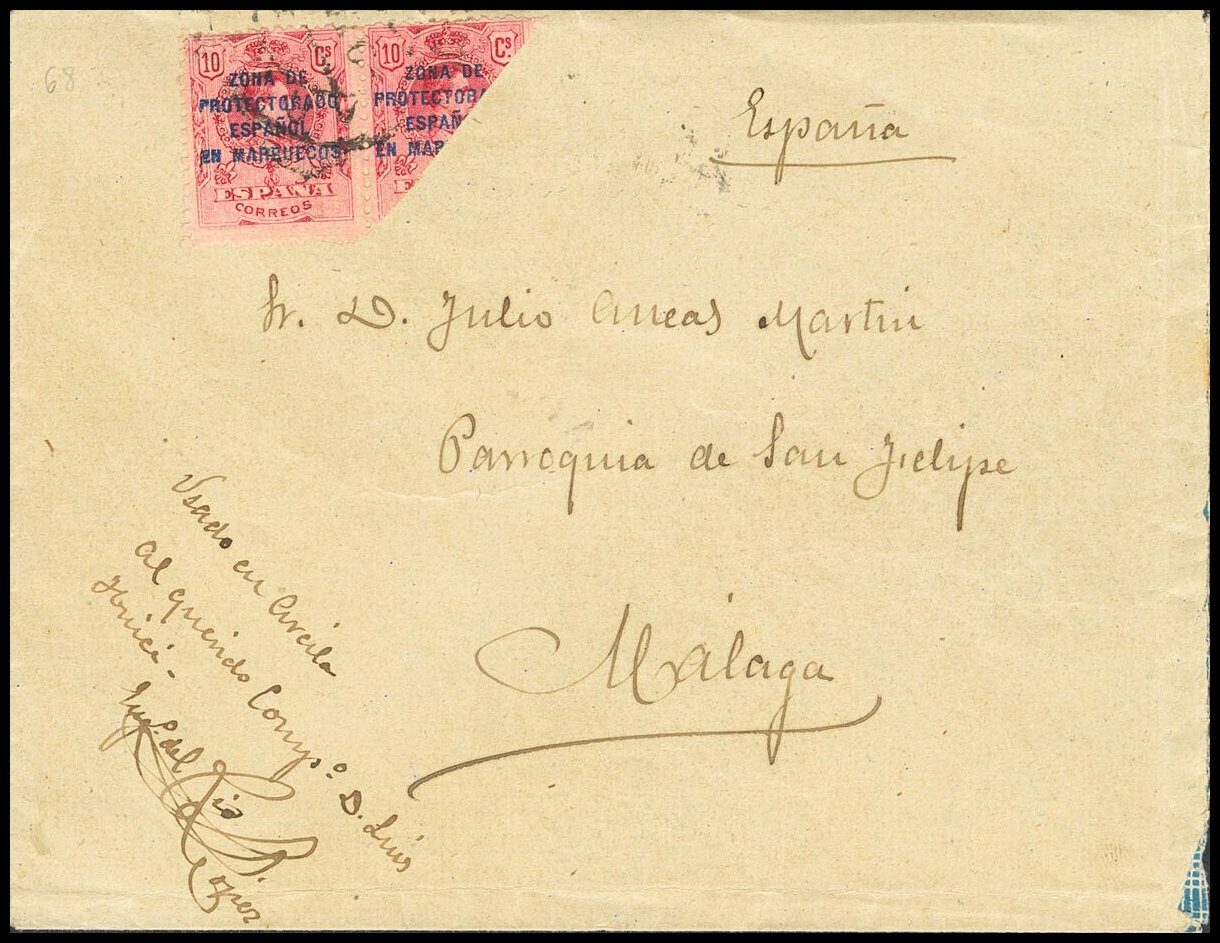 68
10 Cs 10 Cs
ZONA DE ZONA DE
PROTECTORADO PROTECTORA
ESPAÑOL ESPAÑ
EN MARRUECOS EN MAR
ESPAÑA E
CORREOS
España
Sr. D. Julio Aneas Martin
Parroquia de San Felipe
Málaga
Usado en Arcila
al querido Compº D. Luis
del
Rio
Lopez